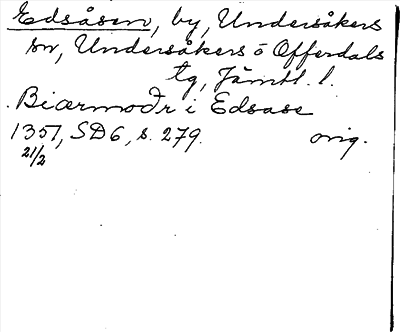 Edsåsen, by, Undersåkers
sn, Undersåkers o Offerdals
tg, Jämtl. l.
Biærmoðr i Edsase
1357, SD6, s. 279. orig.
21/2